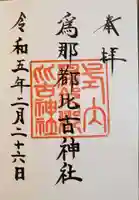 奉拝
為那都比古神社
令和五年二月二十六日